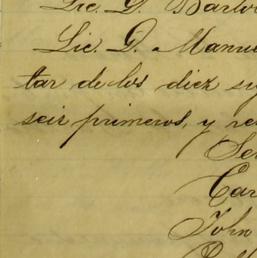 Lic. D. Barto
Lic. D. Manu
tar de los diez su
seis primeros, y re
Se
Car
John